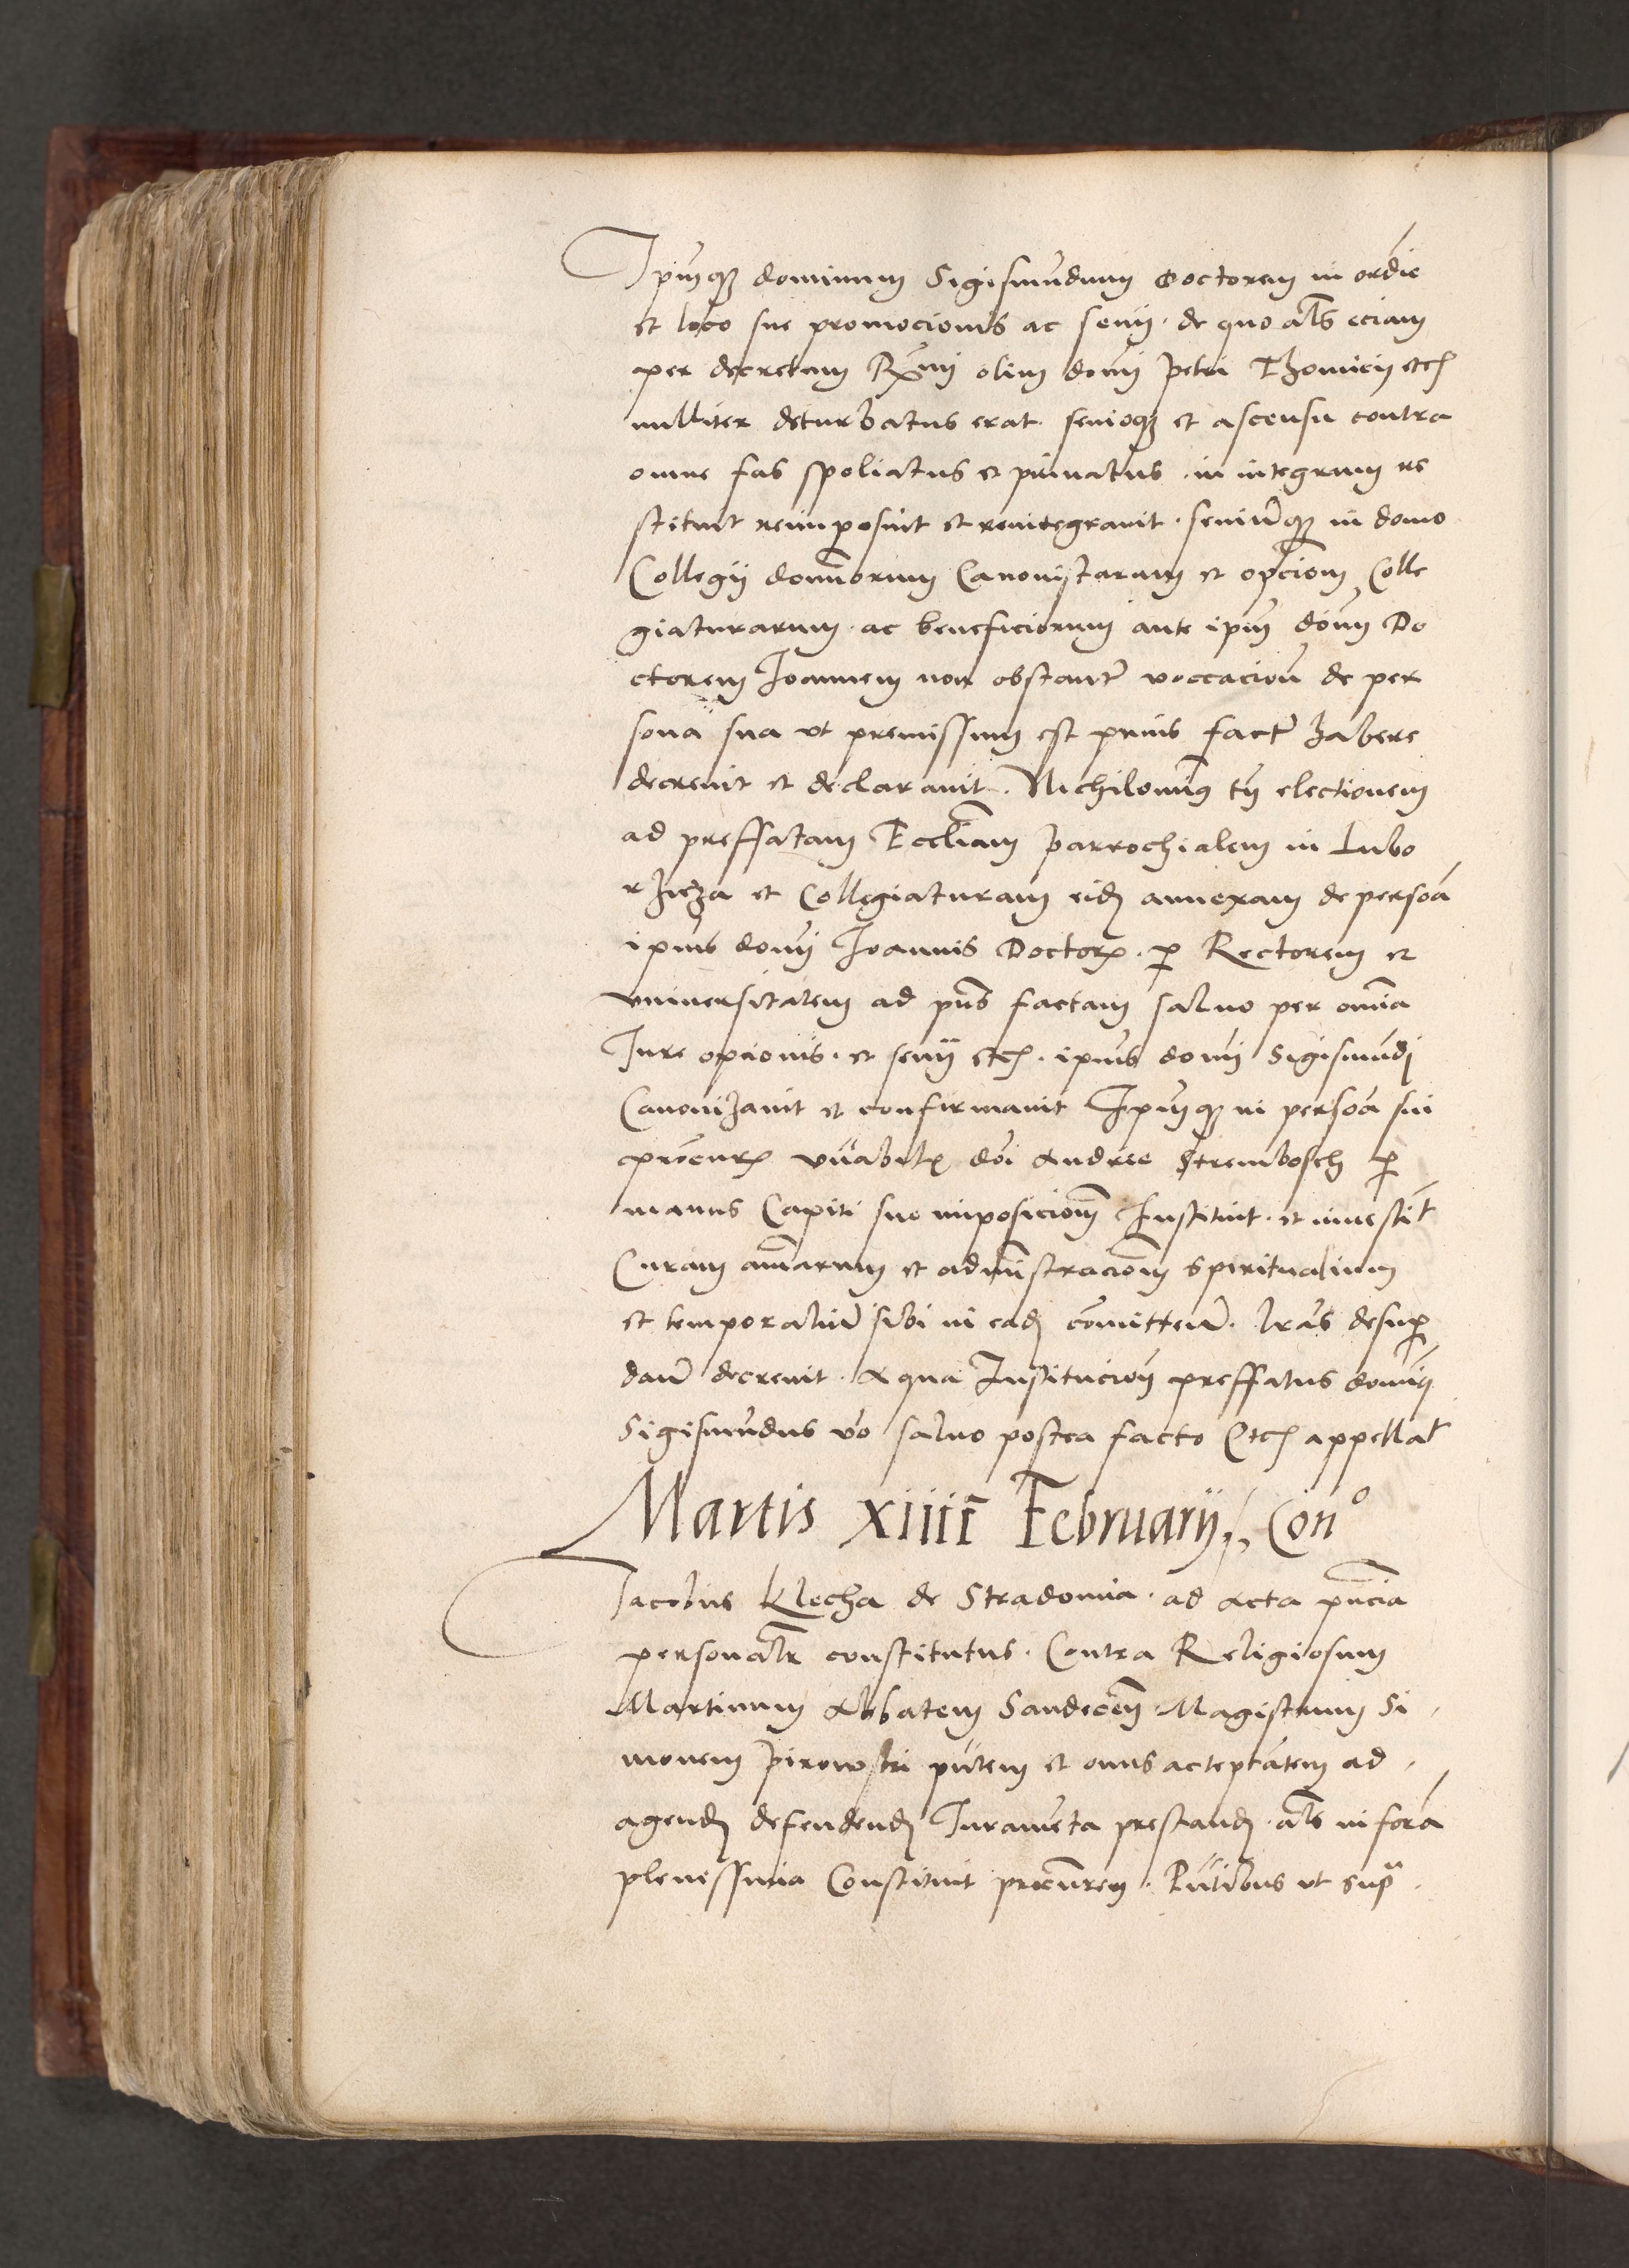 Ipm̄q̨ dominum Sigismūdum doctorem in ordīe
et loco sue promocionis ac senij. de quo al̄s eciam
per decretum Rx̄mi olim dom̄ Petri Thomicij etc̄
nulliter deturbatus erat. senioq̨ et ascensu contra
omne fas spoliatus et priuatus. in integrum re
stituit reimposuit et reintegrauit. seniūq̨ in domo
Collegij domīorum Canonistarum et opcīonem Colle
giaturarum. ac beneficiorum ante ipm̄ dom̄ Do
ctorem Ioannem non obstant̄ voccacioñ de per
sona sua vt premissum est prius fact̄ habere
decreuit et declarauit. Nichilomi9 tn̄ electionem
ad preffatam Eccliam̄ parrochialem in Lubo
rzicza et Collegiaturam eid̄ annexam de persoā
ipius domī Ioannis Doctor̄. p̱ Rectorem et
vniuersitatem ad pn̄s factam saluo per omīa
Iure opcionis. et senij etc̄. ipius domī Sigismūdi
Canonizauit et confirmauit Ipm̄q̨ in persoā sui
procur̄ vn̄abil̄ dn̄i Andree Strembosch p̱
manus Capiti suo imposicioem̄ Instituit. et inuestit̄
Curam aīarum et admīstracioem̄ spiritualium
et temporaliū sibi in ead̄ comitteñ. lr̄as desup̱
dañ decreuit. A qua Institucioñ preffatus domin9
Sigismūdus vo saluo postea facto Etc̄ appellat̄
Martis xiiiī February, Con°
Iacobus Klecha de Stradomia. ad acta pn̄cia
personalr̄ constitutus. Contra Religiosum
Martinum Abbatem Sandecem̄ Magistrum Si
monem Pirowski pn̄tem et onus acceptātem ad
agend̄ defendend̄ Iuramēta prestand̄. al̄s in forā
plenissima Constituit procūrem. Pn̄tibus vt supā.